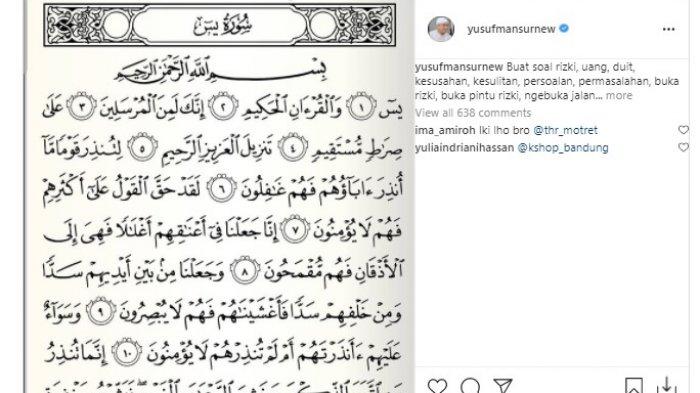 سُورَةُ يسٓ
بِسْمِ ٱللَّهِ ٱلرَّحْمَٰنِ ٱلرَّحِيمِ
يسٓ ١ وَٱلْقُرْءَانِ ٱلْحَكِيمِ ٢ إِنَّكَ لَمِنَ ٱلْمُرْسَلِينَ ٣ عَلَىٰ
صِرَٰطٍ مُّسْتَقِيمٍ ٤ تَنزِيلَ ٱلْعَزِيزِ ٱلرَّحِيمِ ٥ لِتُنذِرَ قَوْمًا مَّآ
أُنذِرَ ءَابَآؤُهُمْ فَهُمْ غَٰفِلُونَ ٦ لَقَدْ حَقَّ ٱلْقَوْلُ عَلَىٰٓ أَكْثَرِهِمْ
فَهُمْ لَا يُؤْمِنُونَ ٧ إِنَّا جَعَلْنَا فِىٓ أَعْنَٰقِهِمْ أَغْلَٰلًا فَهِىَ إِلَى
ٱلْأَذْقَانِ فَهُم مُّقْمَحُونَ ٨ وَجَعَلْنَا مِنۢ بَيْنِ أَيْدِيهِمْ سَدًّا
وَمِنْ خَلْفِهِمْ سَدًّا فَأَغْشَيْنَٰهُمْ فَهُمْ لَا يُبْصِرُونَ ٩ وَسَوَآءٌ
عَلَيْهِمْ ءَأَنذَرْتَهُمْ أَمْ لَمْ تُنذِرْهُمْ لَا يُؤْمِنُونَ ١٠ إِنَّمَا تُنذِرُ
yusufmansurnew
yusufmansurnew Buat soal rizki, uang, duit,
kesusahan, kesulitan, persoalan, permasalahan, buka
rizki, buka pintu rizki, ngebuka jalan... more
View all 638 comments
ima_amiroh Iki lho bro @thr_motret
yuliaindrianihassan @kshop_bandung